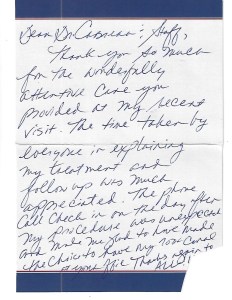 Dear Dr : Staff,
Thank you so much
for the wonderfully
attentive care you
provided at my recent
visit. The time taken by
everyone in explaining
my treatment and
follow up was much
appreciated. The phone
call check in on the day after
my procedure was unexpected
and made me glad to have made
the choice to have my root canal
at your Thanks again to
all!